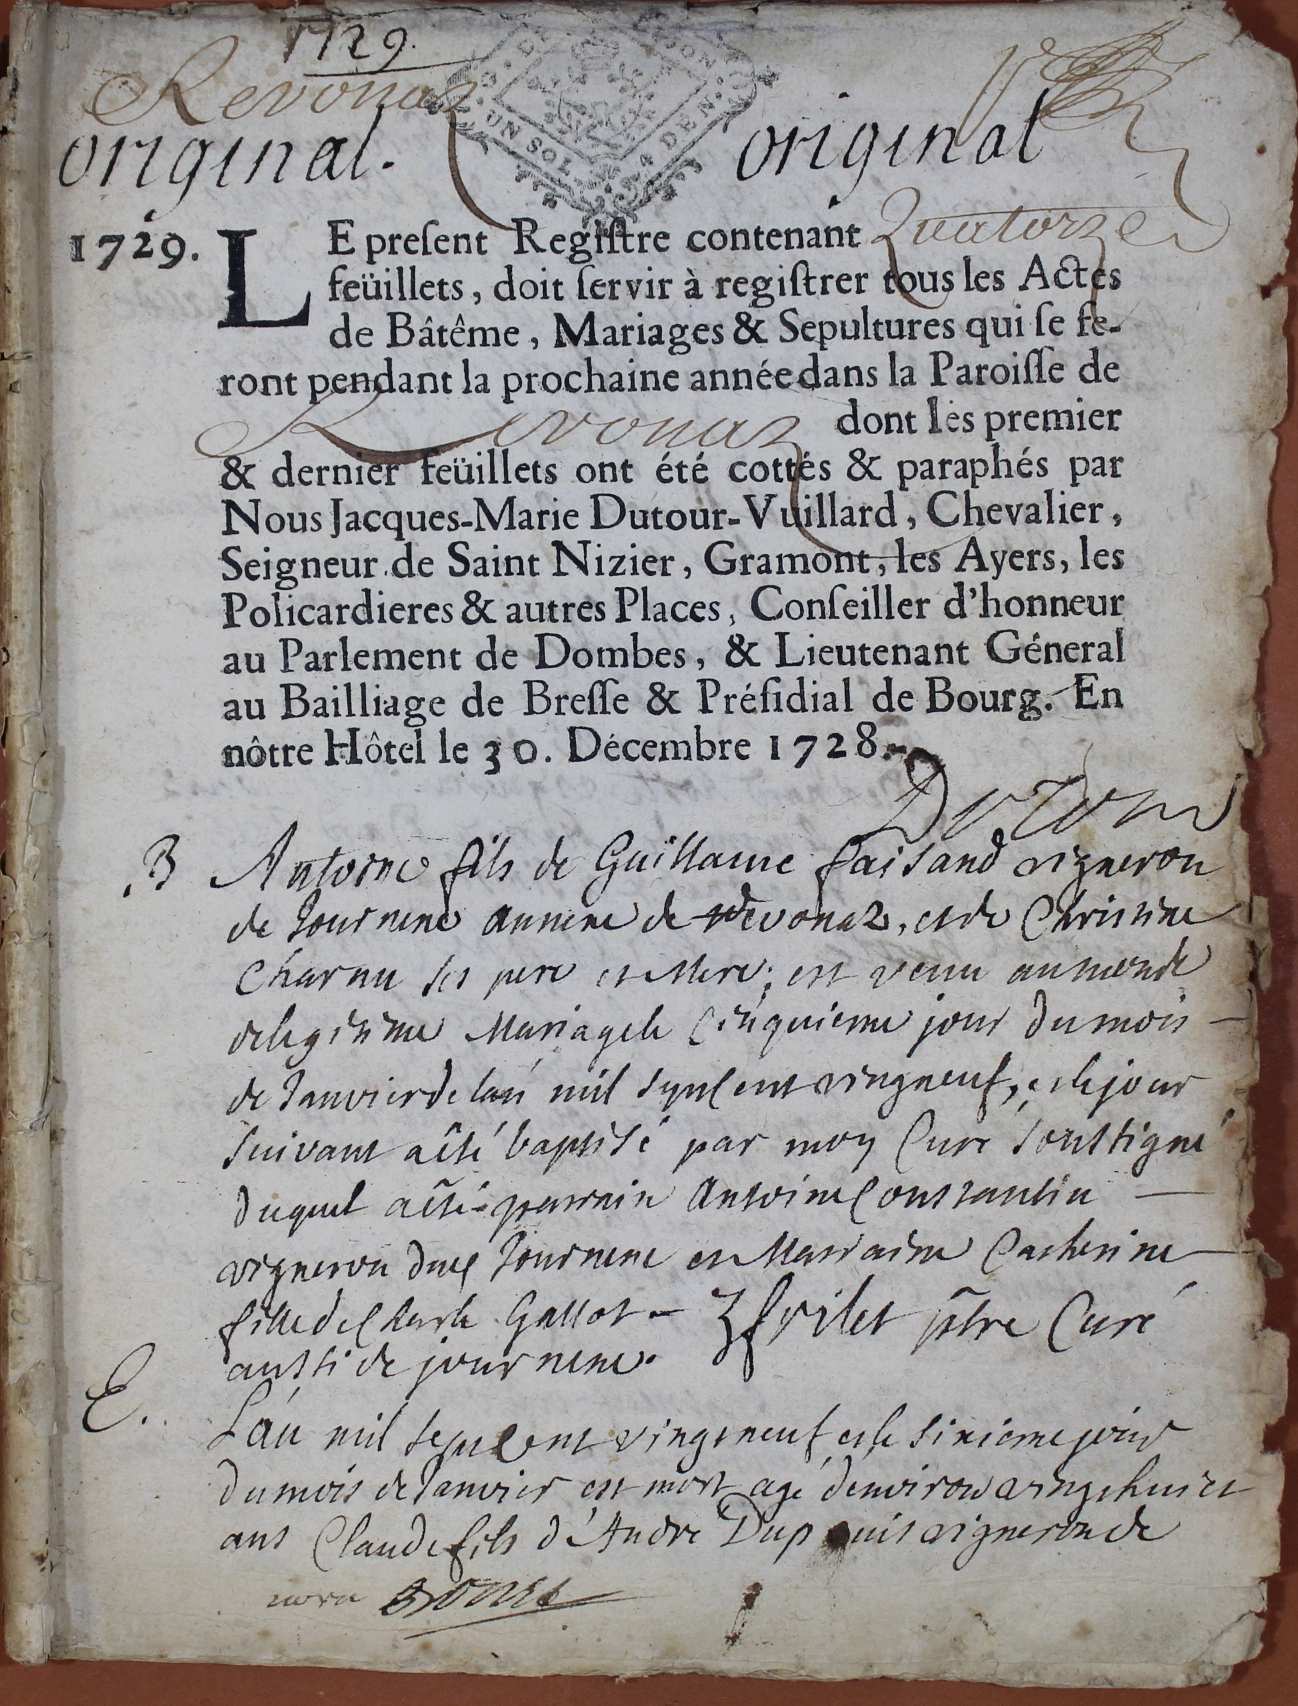 1729.
Revonaz
original.
original
G. DE DIJON
UN SOL 4 DEN.
1729. LE preſent Regiſtre contenant Quatorze
feüillets, doit ſervir à regiſtrer tous les Actes
de Bâtême, Mariages & Sepultures qui ſe fe-
ront pendant la prochaine année dans la Paroiſſe de
Revonaz dont les premier
& dernier feüillets ont été cottés & paraphés par
Nous Jacques-Marie Dutour-Vuillard, Chevalier,
Seigneur de Saint Nizier, Gramont, les Ayers, les
Policardieres & autres Places, Conſeiller d'honneur
au Parlement de Dombes, & Lieutenant Géneral
au Bailliage de Breſſe & Préſidial de Bourg. En
nôtre Hôtel le 30. Décembre 1728.
Dutour
B Antoine fils de Guillaume faisand vigneron
de Journene annexe de Revonaz, et de Christine
Charnu ses pere et Mere; est venu au monde
de legitime Mariage le Cinquieme jour du mois
de Janvier de l'an mil sept cent vingneuf, et le jour
suivant a êté baptisé par moy Curé soussigné
duquel a êté parrain Antoine Constantin
vigneron dud Journene et Marraine Catherine
fille de Charle Gallot frilet ptre Curé
aussi de journene.
E. L'an mil sept cent vingt neuf et le sixieme jour
du mois de Janvier est mort agé d'environ vingt huict
ans Claude fils d'André Dupuis vigneron de